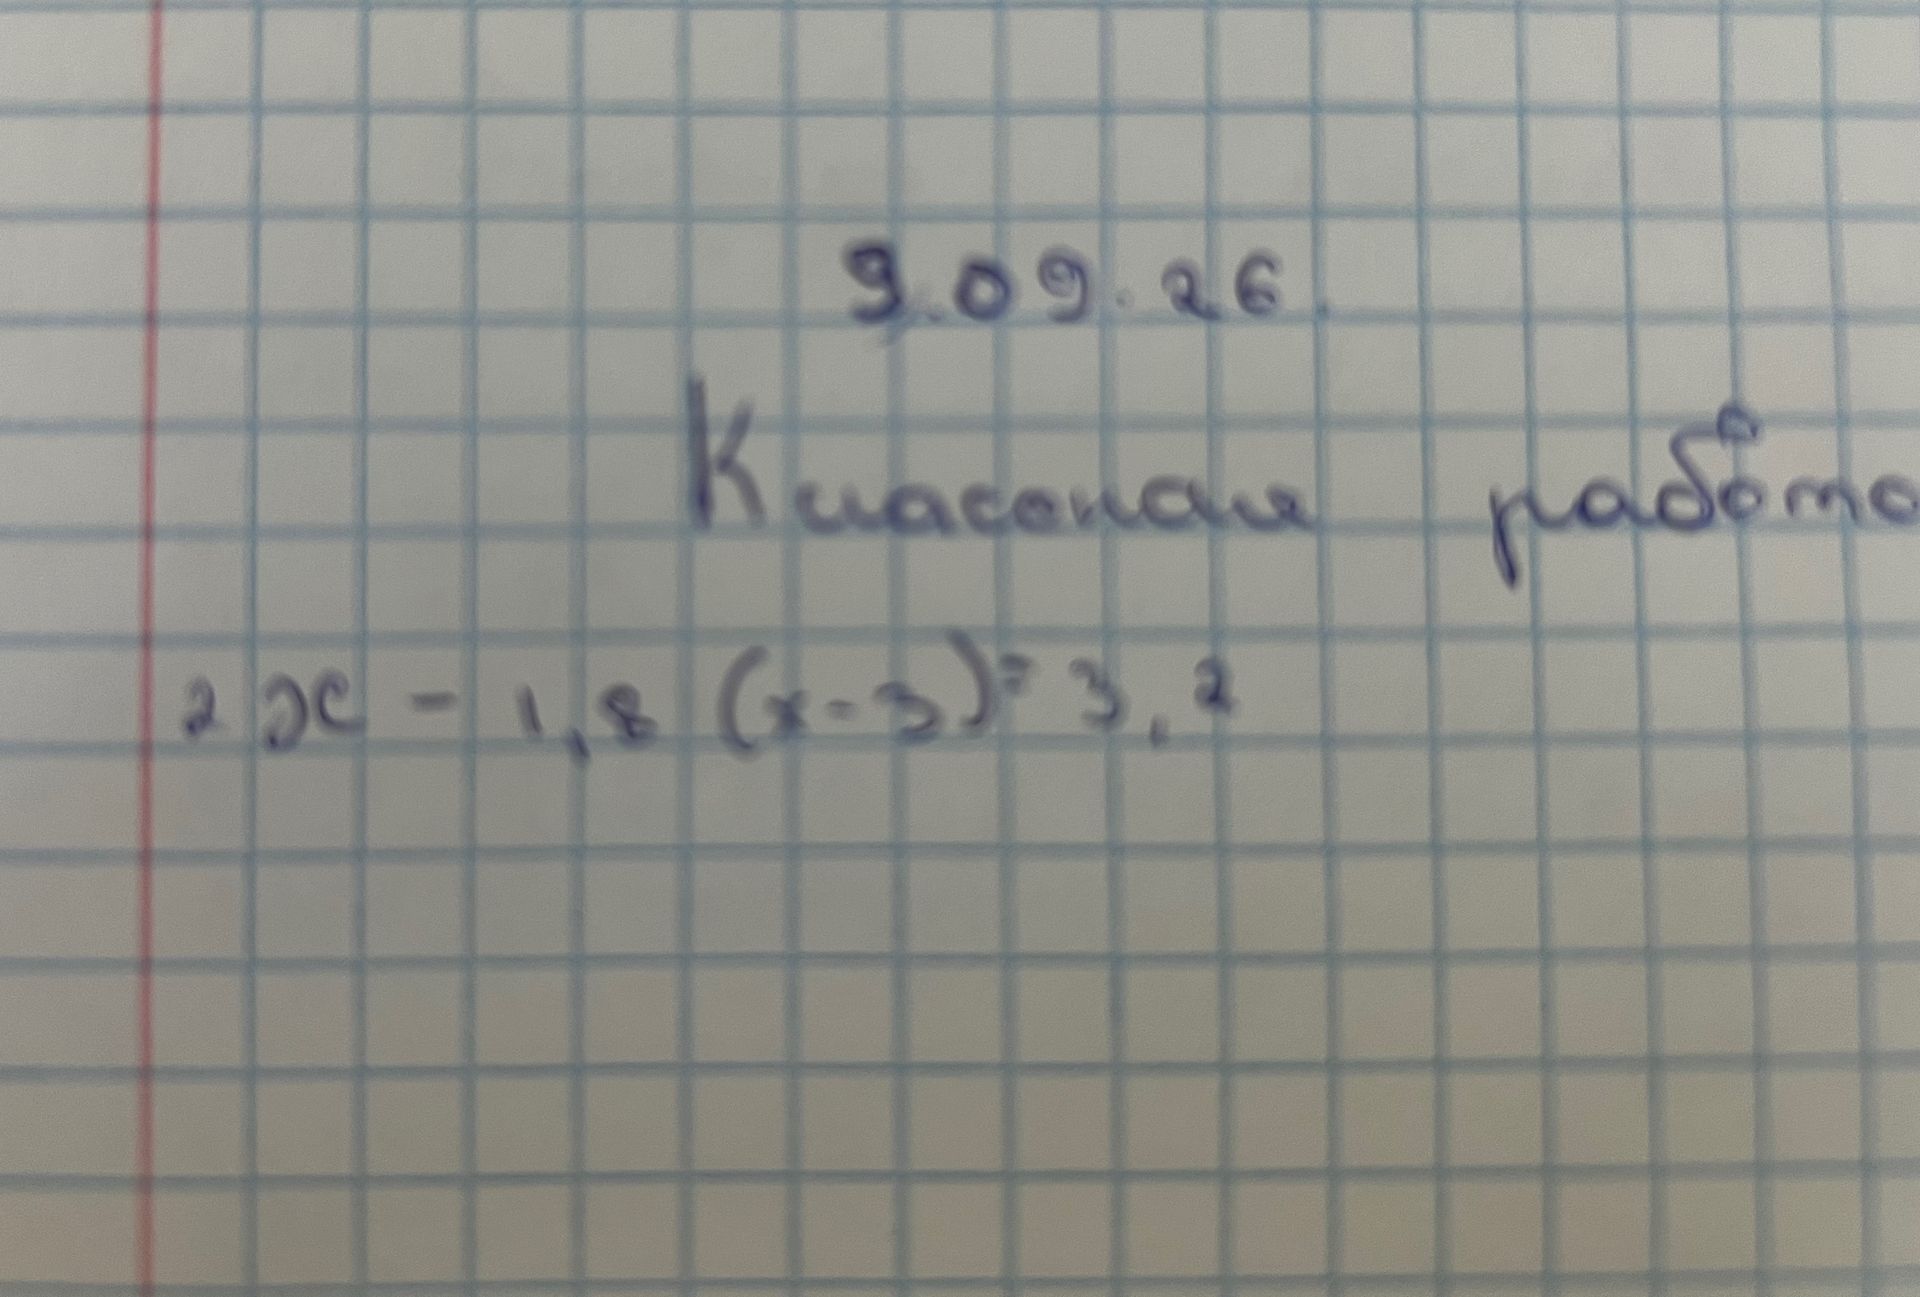 9.09.26.
Классная работа
2x - 1,8 (x-3)= 3,2